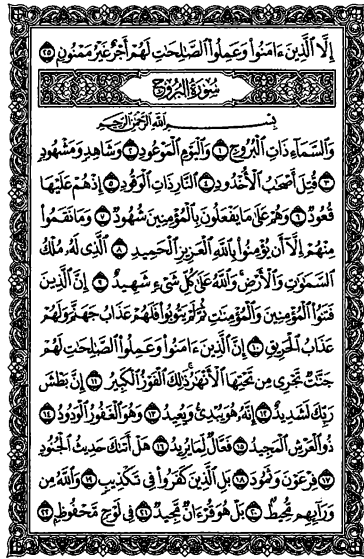 إِلَّا الَّذِينَ ءَامَنُوا۟ وَعَمِلُوا۟ الصَّالِحَاتِ لَهُمْ أَجْرٌ غَيْرُ مَمْنُونٍ ٢٥
سُورَةُ الْبُرُوجِ
بِسْمِ اللَّهِ الرَّحْمَٰنِ الرَّحِيمِ
وَالسَّمَاءِ ذَاتِ الْبُرُوجِ ١ وَالْيَوْمِ الْمَوْعُودِ ٢ وَشَاهِدٍ وَمَشْهُودٍ
٣ قُتِلَ أَصْحَابُ الْأُخْدُودِ ٤ النَّارِ ذَاتِ الْوَقُودِ ٥ إِذْ هُمْ عَلَيْهَا
قُعُودٌ ٦ وَهُمْ عَلَىٰ مَا يَفْعَلُونَ بِالْمُؤْمِنِينَ شُهُودٌ ٧ وَمَا نَقَمُوا۟
مِنْهُمْ إِلَّا أَن يُؤْمِنُوا۟ بِاللَّهِ الْعَزِيزِ الْحَمِيدِ ٨ الَّذِي لَهُ مُلْكُ
السَّمَٰوَٰتِ وَالْأَرْضِ وَاللَّهُ عَلَىٰ كُلِّ شَيْءٍ شَهِيدٌ ٩ إِنَّ الَّذِينَ
فَتَنُوا۟ الْمُؤْمِنِينَ وَالْمُؤْمِنَٰتِ ثُمَّ لَمْ يَتُوبُوا۟ فَلَهُمْ عَذَابُ جَهَنَّمَ وَلَهُمْ
عَذَابُ الْحَرِيقِ ١٠ إِنَّ الَّذِينَ ءَامَنُوا۟ وَعَمِلُوا۟ الصَّالِحَاتِ لَهُمْ
جَنَّٰتٌ تَجْرِي مِن تَحْتِهَا الْأَنْهَٰرُ ذَٰلِكَ الْفَوْزُ الْكَبِيرُ ١١ إِنَّ بَطْشَ
رَبِّكَ لَشَدِيدٌ ١٢ إِنَّهُ هُوَ يُبْدِئُ وَيُعِيدُ ١٣ وَهُوَ الْغَفُورُ الْوَدُودُ ١٤
ذُو الْعَرْشِ الْمَجِيدُ ١٥ فَعَّالٌ لِّمَا يُرِيدُ ١٦ هَلْ أَتَىٰكَ حَدِيثُ الْجُنُودِ
١٧ فِرْعَوْنَ وَثَمُودَ ١٨ بَلِ الَّذِينَ كَفَرُوا۟ فِي تَكْذِيبٍ ١٩ وَاللَّهُ مِن
وَرَآئِهِم مُّحِيطٌ ٢٠ بَلْ هُوَ قُرْءَانٌ مَّجِيدٌ ٢١ فِي لَوْحٍ مَّحْفُوظٍ ٢٢